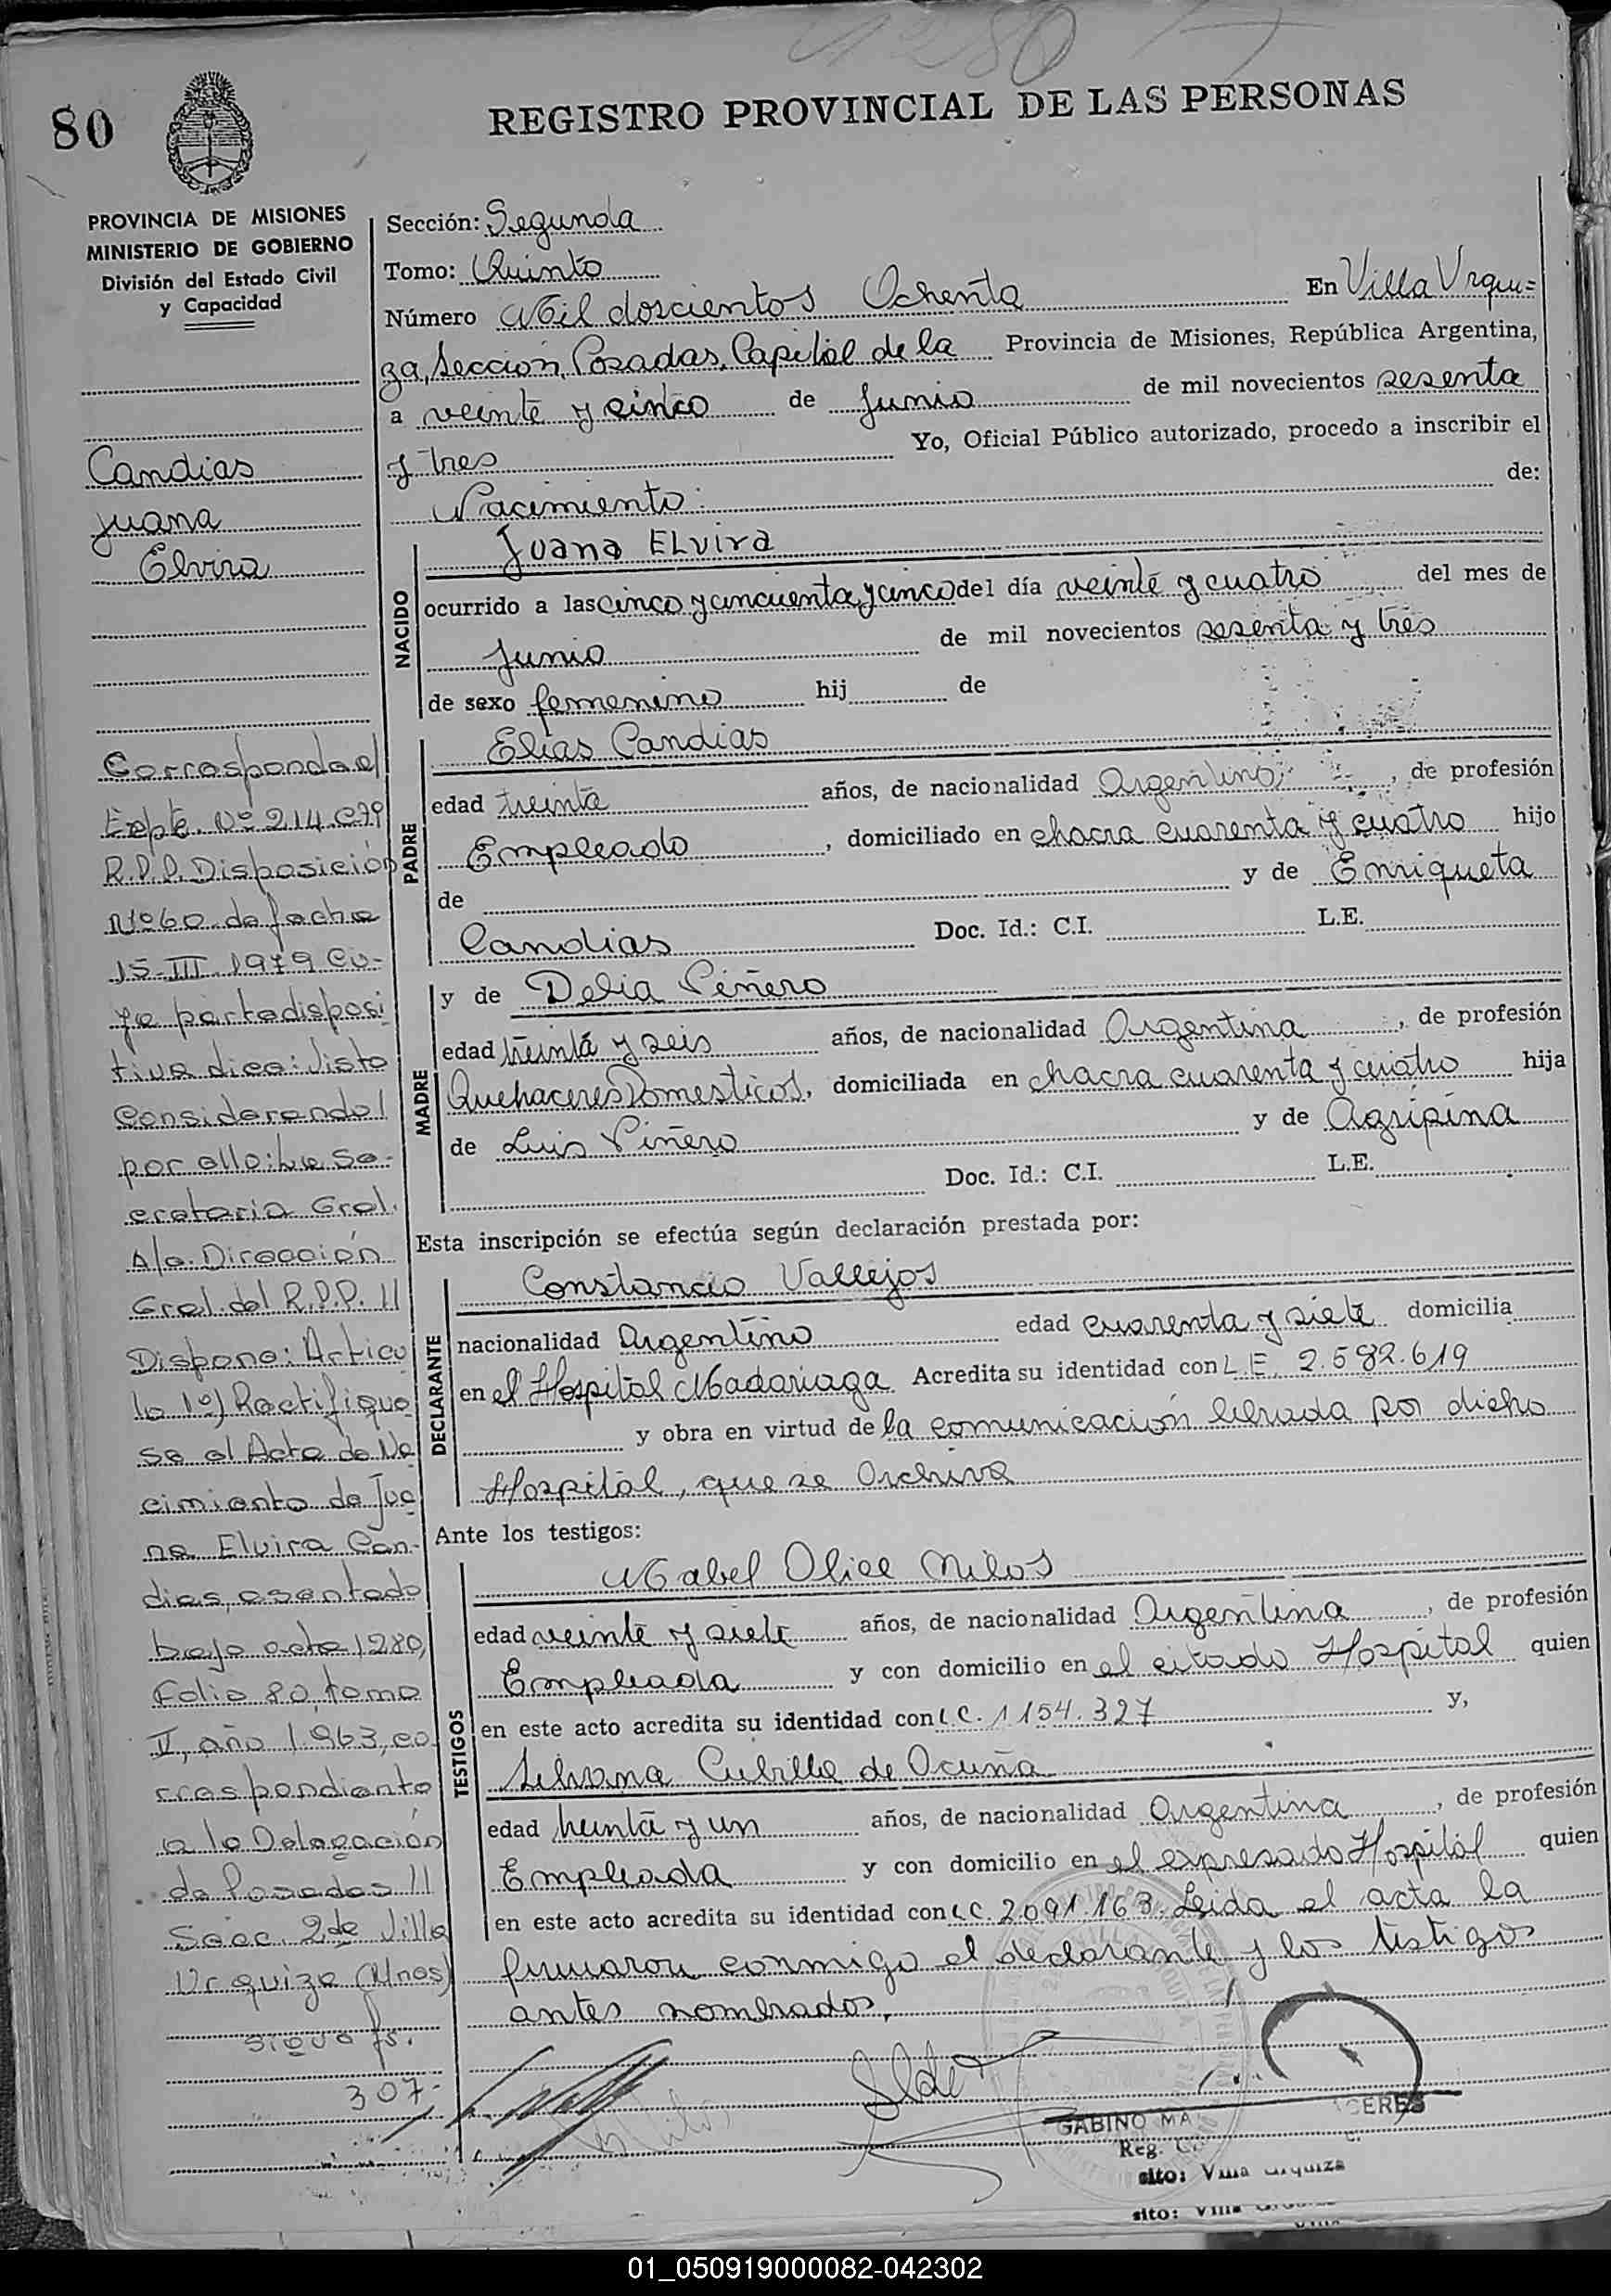 1280
80
REGISTRO PROVINCIAL DE LAS PERSONAS
PROVINCIA DE MISIONES
MINISTERIO DE GOBIERNO
División del Estado Civil
y Capacidad
Candias
Juana
Elvira
Corresponde al
Expte. Nº 214.079
R.P.P. Disposición
Nº 60 de fecha
15-III-1979 Cu-
ya parte disposi
tiva dice: Visto
Considerando!
por ello: La Se-
cretaria Gral.
A/c. Dirección
Gral. del R.P.P. //
Dispone: Artícu
lo 1º) Rectifique
se el Acta de Na
cimiento de Jua
na Elvira Can-
dias, asentado
bajo acta 1280,
Folio 80, tomo
V, año 1.963, co
rrespondiente
a la Delegación
de Posadas //
Secc. 2da Villa
Urquiza (Mnes)
sigue fs.
307-
Sección: Segunda
Tomo: Quinto
Número Mil doscientos Ochenta En Villa Urqui=
za, Sección, Posadas, Capital de la Provincia de Misiones, República Argentina,
a veinte y cinco de Junio de mil novecientos sesenta
y tres Yo, Oficial Público autorizado, procedo a inscribir el
Nacimiento: de:
NACIDO
Juana ELvira
ocurrido a las cinco y cincuenta y cinco del día veinte y cuatro del mes de
Junio de mil novecientos sesenta y tres
de sexo femenino hij de
PADRE
Elias Candias
edad treinta años, de nacionalidad Argentino, de profesión
Empleado, domiciliado en chacra cuarenta y cuatro hijo
de y de Enriqueta
Candias Doc. Id.: C.I. L.E.
MADRE
y de Delia Piñero
edad treinta y seis años, de nacionalidad Argentina, de profesión
Quehaceres Domesticos, domiciliada en chacra cuarenta y cuatro hija
de Luis Piñero y de Agripina
Doc. Id.: C.I. L.E.
Esta inscripción se efectúa según declaración prestada por:
DECLARANTE
Constancio Vallejos
nacionalidad Argentino edad cuarenta y siete domicilia
en el Hospital Madariaga Acredita su identidad con L.E. 2.582.619
y obra en virtud de la comunicación librada por dicho
Hospital, que se Archiva
Ante los testigos:
TESTIGOS
Mabel Olice Milos
edad veinte y siete años, de nacionalidad Argentina, de profesión
Empleada y con domicilio en el citado Hospital quien
en este acto acredita su identidad con L.C. 1154.327 y,
Silvana Cubilla de Ocuña
edad treinta y un años, de nacionalidad Argentina, de profesión
Empleada y con domicilio en el expresado Hospital quien
en este acto acredita su identidad con L.C. 2.091.163. Leida el acta la
firmaron conmigo el declarante y los testigos
antes nombrados.
GABINO MA CERES
Reg.
sito: Villa Urquiza
sito: Villa
01_050919000082-042302